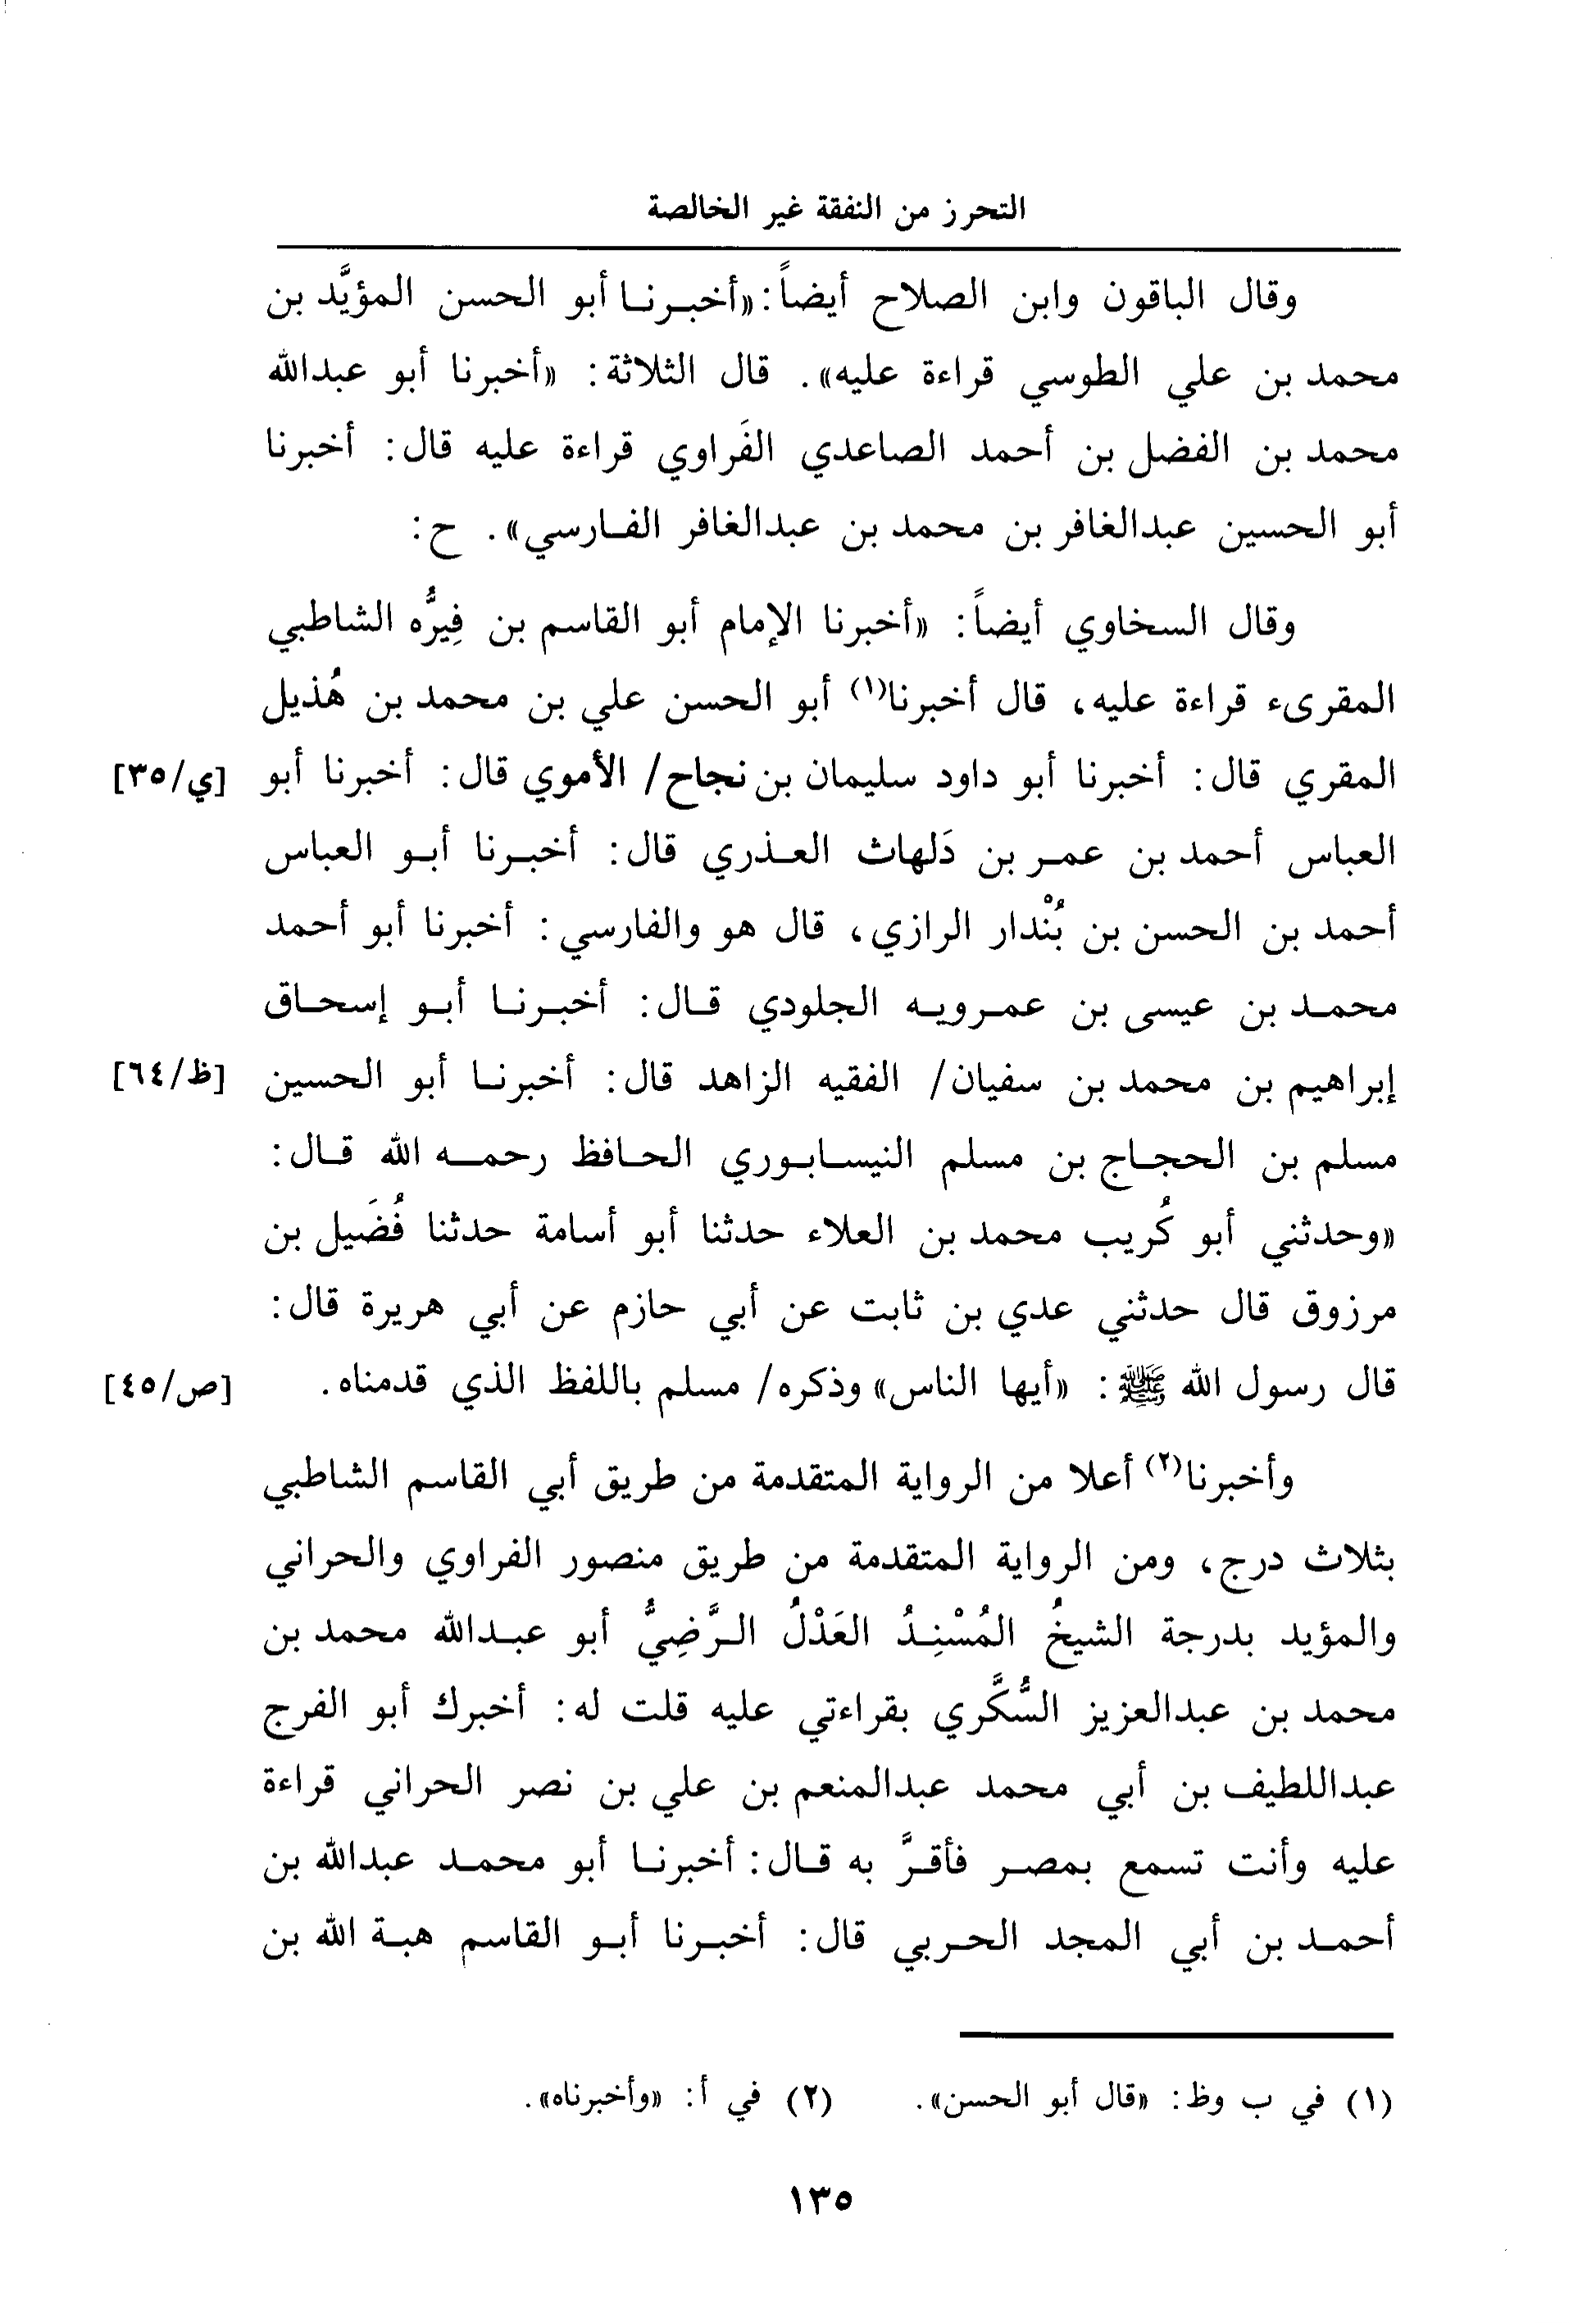 التحرز من النفقة غير الخالصة
وقال الباقون وابن الصلاح أيضاً: «أخبرنا أبو الحسن المؤيَّد بن
محمد بن علي الطوسي قراءة عليه». قال الثلاثة: «أخبرنا أبو عبدالله
محمد بن الفضل بن أحمد الصاعدي الفَراوي قراءة عليه قال: أخبرنا
أبو الحسين عبدالغافر بن محمد بن عبدالغافر الفارسي». ح:
وقال السخاوي أيضاً: «أخبرنا الإمام أبو القاسم بن فِيرُّه الشاطبي
المقرىء قراءة عليه، قال أخبرنا(١) أبو الحسن علي بن محمد بن هُذيل
المقري قال: أخبرنا أبو داود سليمان بن نجاح/ الأموي قال: أخبرنا أبو [ي/٣٥]
العباس أحمد بن عمر بن دَلهاث العذري قال: أخبرنا أبو العباس
أحمد بن الحسن بن بُنْدار الرازي، قال هو والفارسي: أخبرنا أبو أحمد
محمد بن عيسى بن عمرويه الجلودي قال: أخبرنا أبو إسحاق
إبراهيم بن محمد بن سفيان/ الفقيه الزاهد قال: أخبرنا أبو الحسين [ظ/٦٤]
مسلم بن الحجاج بن مسلم النيسابوري الحافظ رحمه الله قال:
«وحدثني أبو كُريب محمد بن العلاء حدثنا أبو أسامة حدثنا فُضَيل بن
مرزوق قال حدثني عدي بن ثابت عن أبي حازم عن أبي هريرة قال:
قال رسول الله ﷺ: «أيها الناس» وذكره/ مسلم باللفظ الذي قدمناه. [ص/٤٥]
وأخبرنا(٢) أعلا من الرواية المتقدمة من طريق أبي القاسم الشاطبي
بثلاث درج، ومن الرواية المتقدمة من طريق منصور الفراوي والحراني
والمؤيد بدرجة الشيخُ المُسْنِدُ العَدْلُ الرَّضِيُّ أبو عبدالله محمد بن
محمد بن عبدالعزيز السُّكَّري بقراءتي عليه قلت له: أخبرك أبو الفرج
عبداللطيف بن أبي محمد عبدالمنعم بن علي بن نصر الحراني قراءة
عليه وأنت تسمع بمصر فأقرَّ به قال: أخبرنا أبو محمد عبدالله بن
أحمد بن أبي المجد الحربي قال: أخبرنا أبو القاسم هبة الله بن
(١) في ب وظ: «قال أبو الحسن». (٢) في أ: «وأخبرناه».
١٣٥